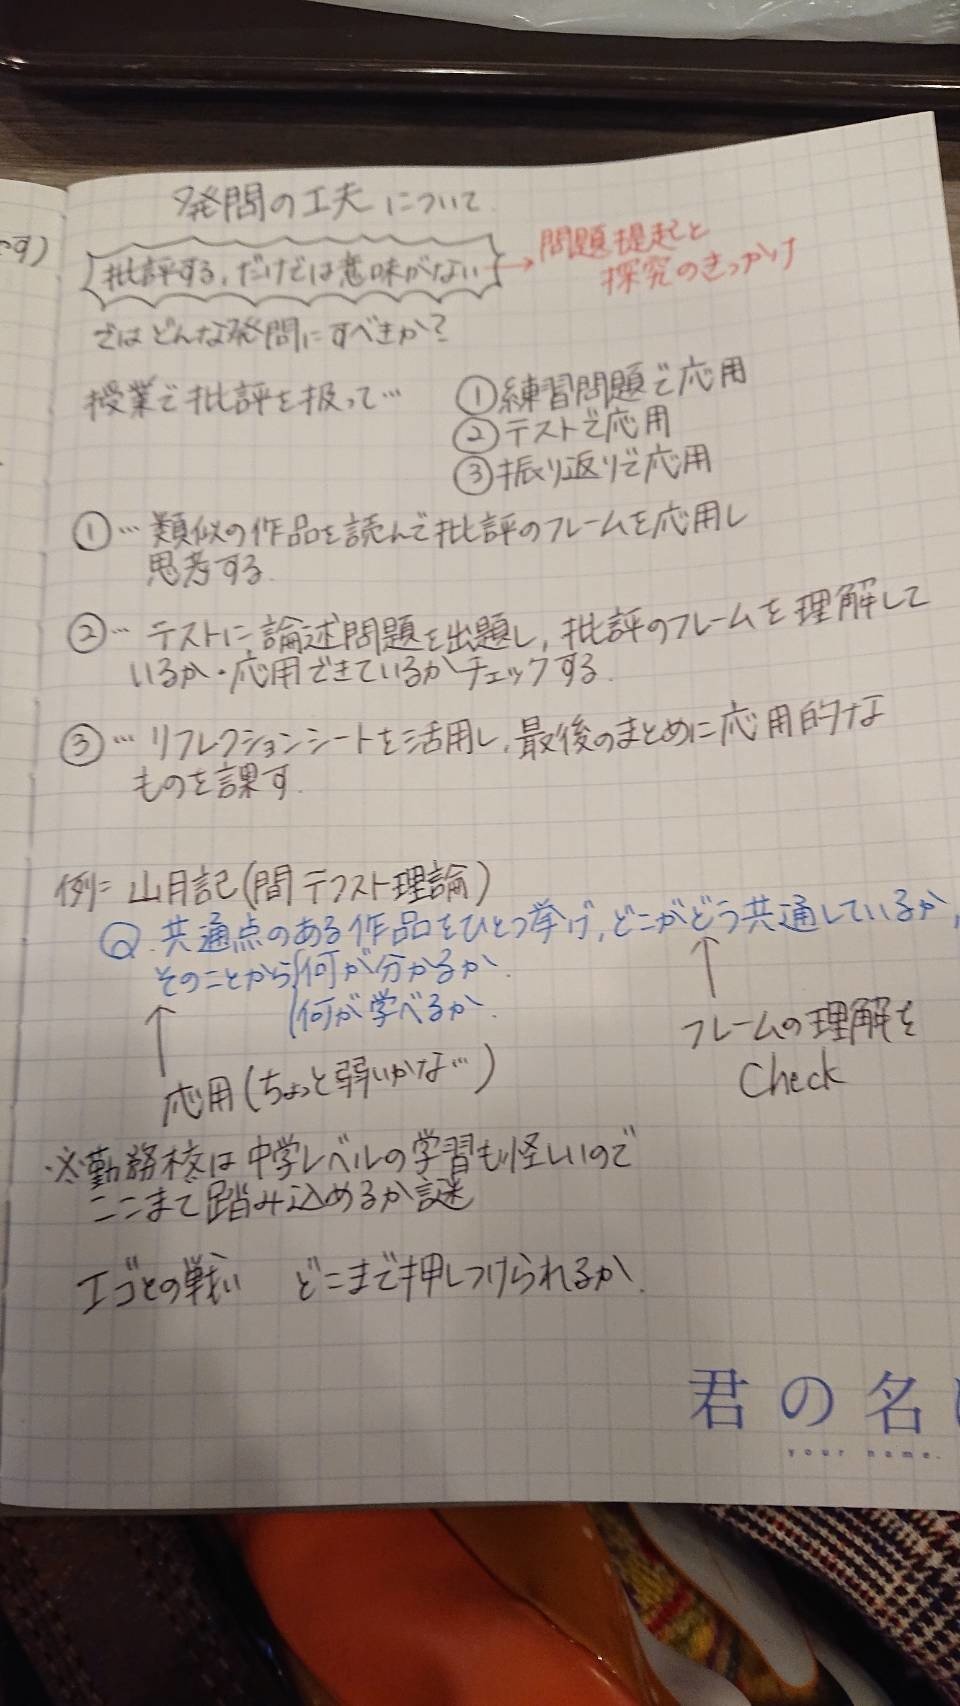 発問の工夫について
批評する,だけでは意味がない
→問題提起と
探究のきっかけ
ではどんな発問にすべきか?
授業で批評を扱って…
①練習問題で応用
②テストで応用
③振り返りで応用
①…類似の作品を読んで批評のフレームを応用し
思考する.
②…テストに論述問題を出題し,批評のフレームを理解して
いるか・応用できているかチェックする.
③…リフレクションシートを活用し,最後のまとめに応用的な
ものを課す.
例=山月記(間テクスト理論)
Q.共通点のある作品をひとつ挙げ,どこがどう共通しているか,
そのことから 何が分かるか.
何が学べるか.
↑
応用(ちょっと弱いかな…)
↑
フレームの理解を
Check
※勤務校は中学レベルの学習も怪しいので
ここまで踏み込めるか謎
エゴとの戦い どこまで押しつけられるか.
君の名
your name.